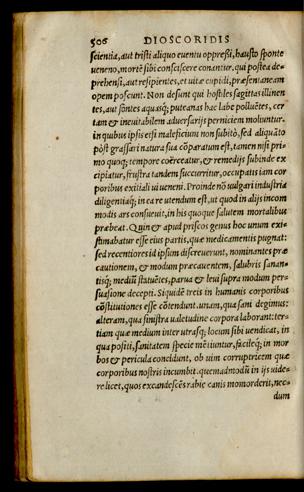 506 DIOSCORIDIS
scientia, aut tristi aliquo euentu oppressi, hausto sponte
ueneno, mortē sibi consciscere conantur. qui postea de-
prehensi, aut resipientes, et uitæ cupidi, præsentaneam
opem poscunt. Non desunt qui hostiles sagittas illinen-
tes, aut fontes aquasq́; puteanas hac labe polluētes, cer
tam & ineuitabilem aduersarijs perniciem moliuntur.
in quibus ipsis etsi maleficium non subitò, sed aliquāto
pòst grassari natura sua cōparatum est, tamen nisi pri-
mo quoq; tempore coërceatur, & remedijs subinde ex
cipiatur, frustra tandem succurritur, occupatis iam cor
poribus exitiali ui ueneni. Proinde nō uulgari industria
diligentiaq́; in ea re utendum est, ut quod in alijs incom
modis ars consueuit, in his quoque salutem mortalibus
præbeat. Quin & apud priscos genus hoc unum exi-
stimabatur esse eius partis, quæ medicamentis pugnat:
sed recentiores id ipsum discreuerunt, nominantes præ
cautionem, & modum præcauentem, salubris sanan-
tisq́; mediū statuētes, parua & leui supra modum per-
suasione decepti. Siquidē treis in humanis corporibus
cōstitutiones esse cōtendunt. unam, qua sani degimus:
alteram, qua sinistra ualetudine corpora laborant: ter-
tiam quæ medium inter utrasq; locum sibi uendicat, in
qua positi, sanitatem specie mētiuntur, facileq́; in mor
bos & pericula concidunt, ob uim corruptricem quæ
corporibus nostris incumbit. quemadmodū in ijs uide-
re licet, quos excandescēs rabie canis momorderit, nec-
dum